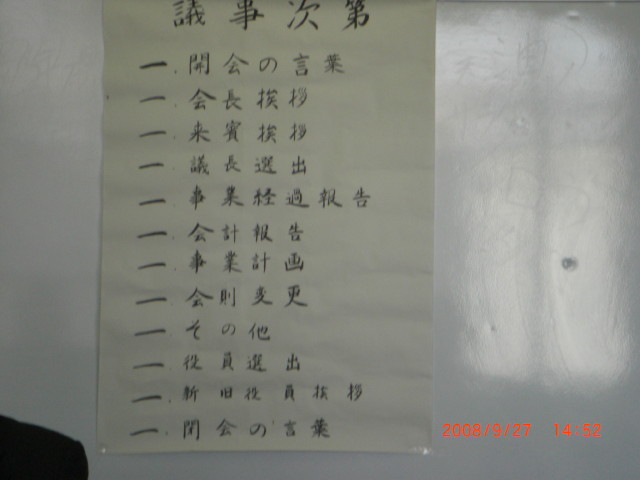 議事次第
一.開会の言葉
一.会長挨拶
一.来賓挨拶
一.議長選出
一.事業経過報告
一.会計報告
一.事業計画
一.会則変更
一.その他
一.役員選出
一.新旧役員挨拶
一.閉会の言葉
2008/9/27 14:52